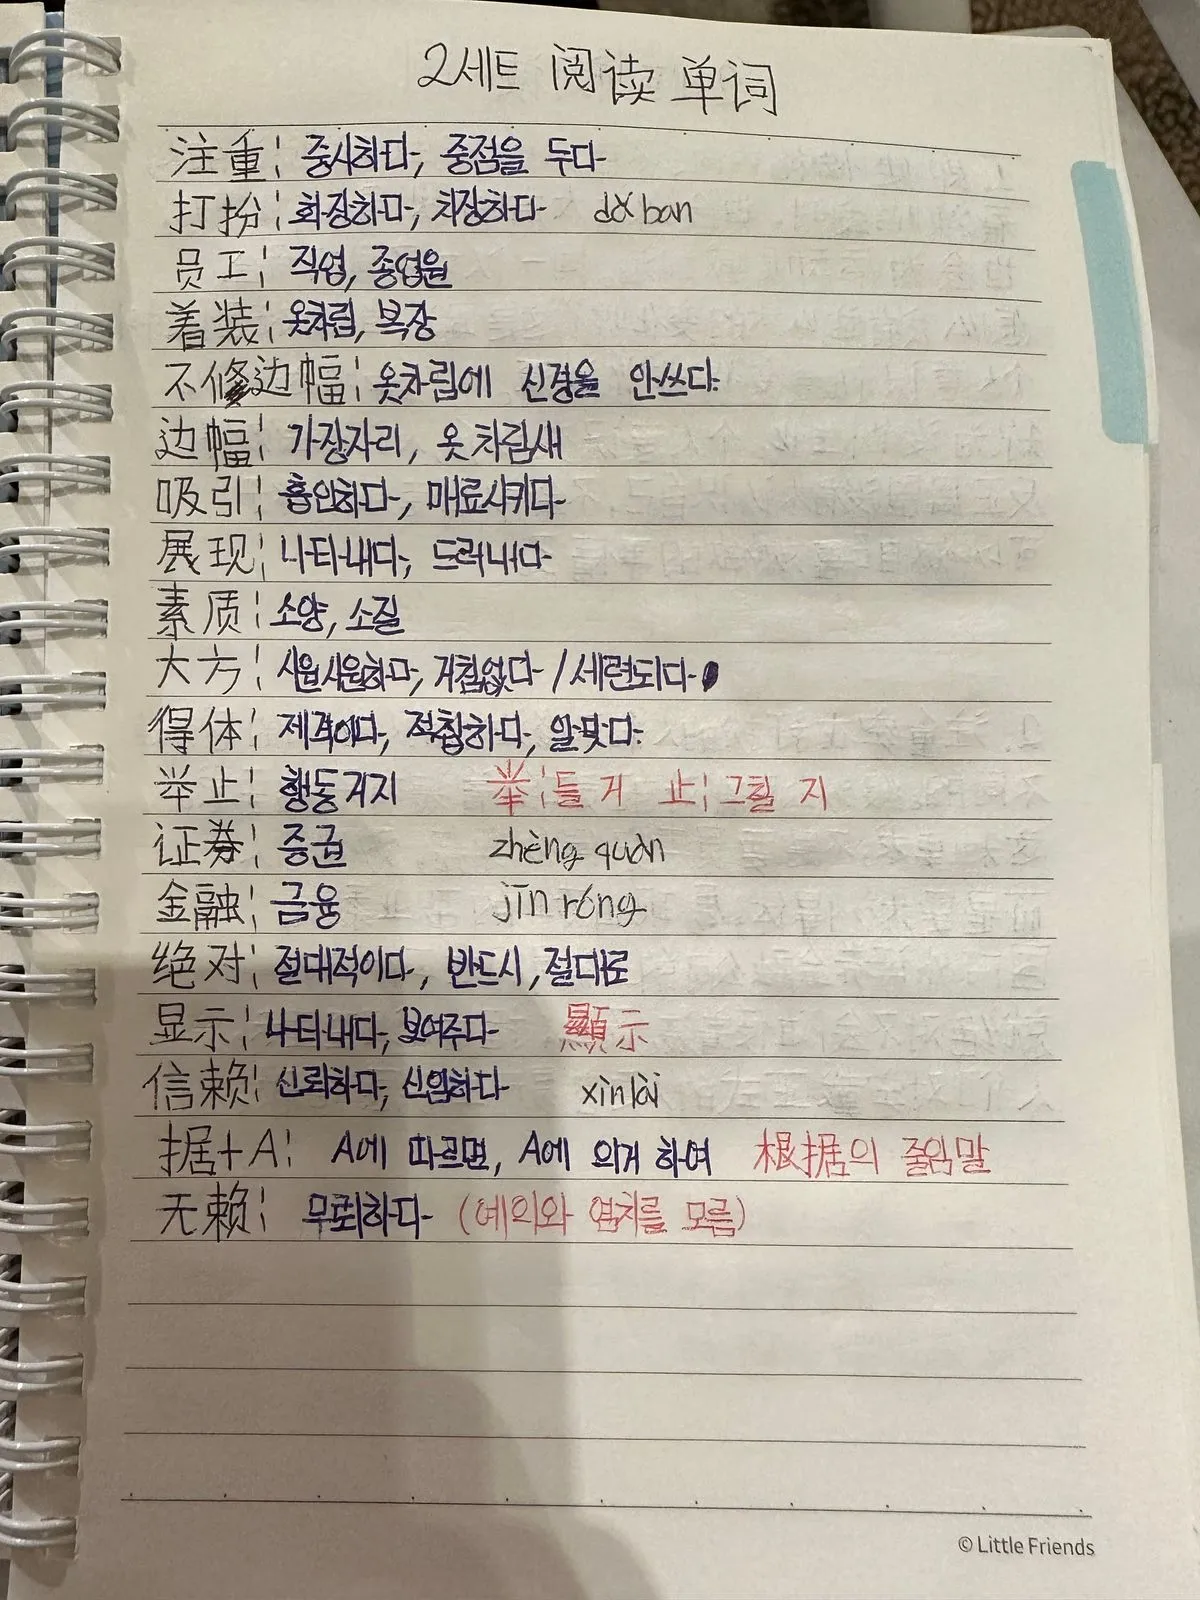 2세트 阅读 单词
注重: 중시하다, 중점을 두다
打扮: 화장하다, 치장하다 dǎ ban
员工: 직업, 종업원
着装: 옷차림, 복장
不修边幅: 옷차림에 신경을 안쓰다.
边幅: 가장자리, 옷 차림새
吸引: 흡인하다, 매료시키다
展现: 나타내다, 드러내다
素质: 소양, 소질
大方: 시원시원하다, 거침없다 / 세련되다
得体: 제격이다, 적절하다, 알맞다.
举止: 행동거지 举: 들 거 止: 그칠 지
证券: 증권 zhèng quàn
金融: 금융 jīn róng
绝对: 절대적이다, 반드시, 절대로
显示: 나타내다, 보여주다 顯示
信赖: 신뢰하다, 신임하다 xìn lài
据+A: A에 따르면, A에 의거 하여 根据의 줄임말
无赖: 무뢰하다 (예의와 염치를 모름)
© Little Friends